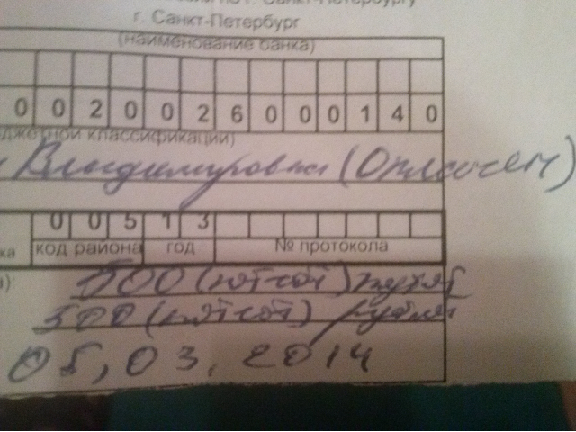 г. Санкт-Петербург
(наименование банка)
0 0 2 0 0 2 6 0 0 0 1 4 0
джетной классификации)
Владимировна (Оплачен)
0 0 5 1 3
код района год № протокола
500 (пятсот) рублей
500 (пятсот) рублей
05, 03, 2014